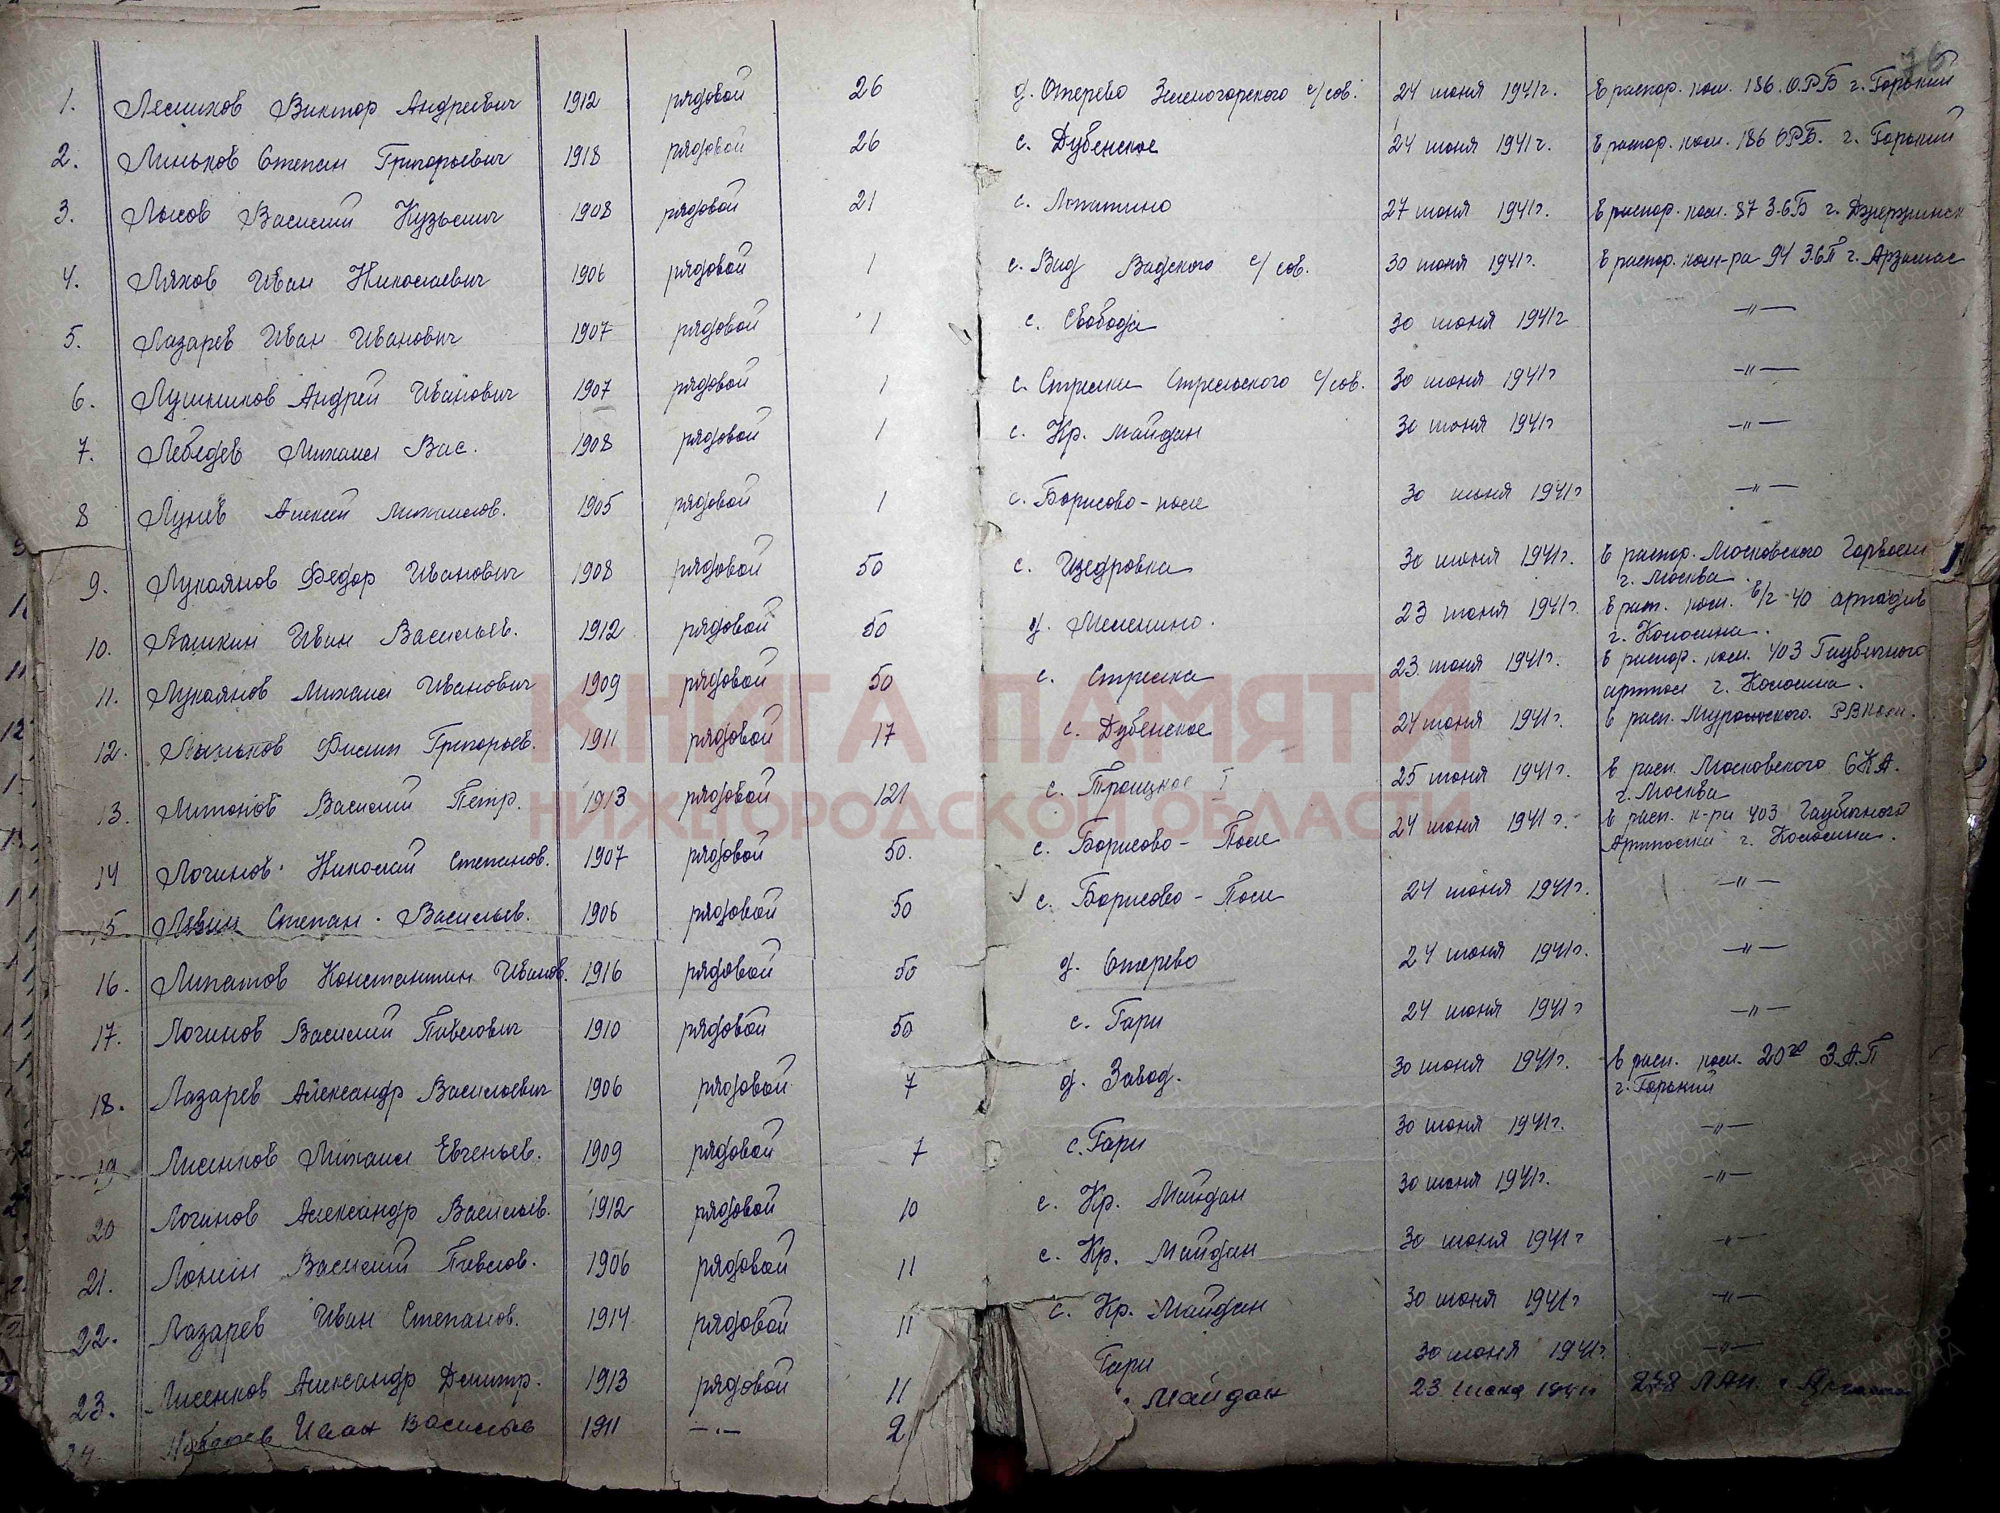 76
1. Лесников Виктор Андреевич 1912 рядовой 26 д. Отерево Зеленогорского с/сов. 24 июня 1941г. В распор. ком. 186 О.Р.Б г. Горький
2. Линьков Степан Григорьевич 1918 рядовой 26 с. Дубенское 24 июня 1941г. В распор. ком. 186 ОРБ. г. Горький
3. Лысов Василий Кузьмич 1908 рядовой 21 с. Лопатино 27 июня 1941г. В распор. ком. 87 З.б.Б г. Дзержинск
4. Ляхов Иван Николаевич 1906 рядовой 1 с. Вад Вадского с/сов. 30 июня 1941г. В распор. ком-ра 94 З.б.П г. Арзамас
5. Лазарев Иван Иванович 1907 рядовой 1 с. Свобода 30 июня 1941г —"—
6. Лушников Андрей Иванович 1907 рядовой 1 с. Стрелка Стрельского с/сов. 30 июня 1941г —"—
7. Лебедев Михаил Вас. 1908 рядовой 1 с. Кр. Майдан 30 июня 1941г —"—
8 Лунев Алексей Михайлов. 1905 рядовой 1 с. Борисово-поле 30 июня 1941г —"—
9. Лукоянов Федор Иванович 1908 рядовой 50 с. Щедровка 30 июня 1941г. В распор. Московского
г. Москва
10. Лашкин Иван Васильев. 1912 рядовой 50 д. Меленино. 23 июня 1941г. В расп. ком. в/г 40 артдив
г. Коломна.
11. Лукоянов Михаил Иванович 1909 рядовой 50 с. Стрелка 23 июня 1941г. В распор. ком. 403 Гаубичного
артпол г. Коломна.
12. Филип Григорьев. 1911 рядовой 17 с. Дубенское 24 июня 1941г. В расп. Муромского. РВКом.
13. Василий Петр. 1913 рядовой 121 с. Троицкое I 25 июня 1941г. В расп. Московского
г. Москва
14 Логинов Николай Степанов. 1907 рядовой 50. с. Борисово-Поле 24 июня 1941г. В расп. к-ра 403 Гаубичного
Артполка г. Коломна.
15. Левин Степан Васильев. 1906 рядовой 50 с. Борисово-Поле 24 июня 1941г. —"—
16. Липатов Константин Иванов. 1916 рядовой 50 д. Отерево 24 июня 1941г. —"—
17. Логинов Василий Павлович 1910 рядовой 50 с. Гари 24 июня 1941г —"—
18. Лазарев Александр Васильевич 1906 рядовой 7 д. Завод. 30 июня 1941г. В расп. ком. 20го З.А.П
г. Горький
19 Лисенков Михаил Евгеньев. 1909 рядовой 7 с. Гари 30 июня 1941г. —"—
20 Логинов Александр Васильев. 1912 рядовой 10 с. Кр. Майдан 30 июня 1941г. —"—
21. Василий Павлов. 1906 рядовой 11 с. Кр. Майдан 30 июня 1941г —"—
22. Лазарев Иван Степанов. 1914 рядовой 11 с. Кр. Майдан 30 июня 1941г —"—
23. Лисенков Александр Дмитр. 1913 рядовой 11 Гари 30 июня 1941г. —"—
24. Иван Васильев 1911 —.— 2 Майдан 23 июня 1941г
КНИГА ПАМЯТИ
НИЖЕГОРОДСКОЙ ОБЛАСТИ